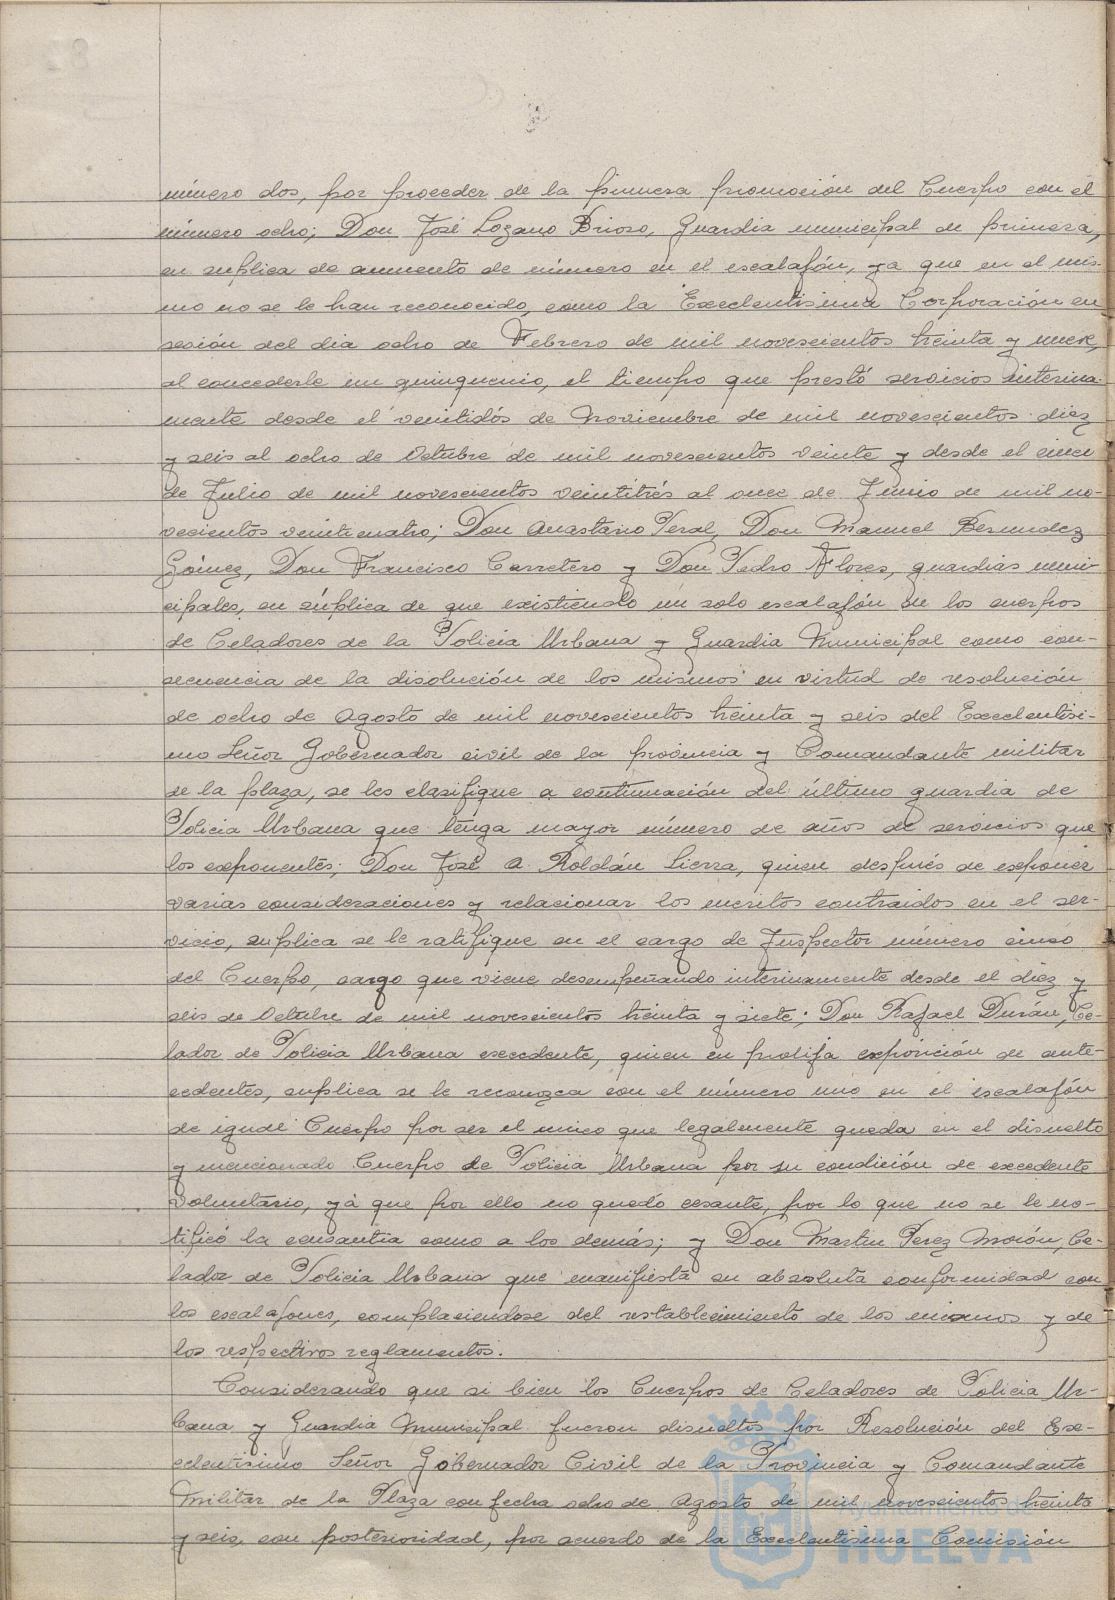 número dos, por proceder de la primera promoción del Cuerpo con el
número ocho; Don José Lozano Brioso, Guardia municipal de primera,
en suplica de aumento de número en el escalafón, ya que en el mis-
mo no se le han reconocido, como la Excelentisima Corporación en
sesión del dia ocho de Febrero de mil novescientos treinta y nueve,
al concederle un quinquenio, el tiempo que prestó servicios interina-
mente desde el venitidós de Noviembre de mil novescientos diez
y seis al ocho de Octubre de mil novescientos veinte y desde el cinco
de Julio de mil novescientos veintitrés al once de Junio de mil no-
vecientos veinticuatro; Don Anastasio Peral, Don Manuel Bermudez
Gómez, Don Francisco Carretero y Don Pedro Flores, guardias muni-
cipales, en súplica de que existiendo un solo escalafón en los cuerpos
de Celadores de la Policia Urbana y Guardia Municipal como con-
secuencia de la disolución de los mismos en virtud de resolución
de ocho de Agosto de mil novescientos treinta y seis del Excelentisi-
mo Señor Gobernador civil de la provincia y Comandante militar
de la plaza, se les clasifique a continuación del último guardia de
Policia Urbana que tenga mayor número de años de servicios que
los exponentes; Don José A. Roldán Sierra, quien después de exponer
varias consideraciones y relacionar los meritos contraidos en el ser-
vicio, suplica se le ratifique en el cargo de Inspector número cinco
del Cuerpo, cargo que viene desempeñando interinamente desde el diez y
seis de Octubre de mil novescientos treinta y siete; Don Rafael Durán, Ce-
lador de Policia Urbana excedente, quien en prolija exposición de ante-
cedentes, suplica se le reconozca con el número uno en el escalafón
de igual Cuerpo por ser el unico que legalmente queda en el disuelto
y mencionado Cuerpo de Policia Urbana por su condición de excedente
voluntario, yá que por ello no quedó cesante, por lo que no se le no-
tificó la censantia como a los demás; y Don Martin Perez Moión, Ce-
lador de Policia Urbana que manifiesta su absoluta conformidad con
los escalafones, complaciendose del restablecimiento de los mismos y de
los respectivos reglamentos.
Considerando que si bien los Cuerpos de Celadores de Policia Ur-
bana y Guardia Municipal fueron disueltos por Resolución del Exe-
celentisimo Señor Gobernador Civil de la Provincia y Comandante
Militar de la Plaza con fecha ocho de Agosto de mil novescientos treinta
y seis, con posterioridad, por acuerdo de la Excelentisima Comisión
Ayuntamiento de
HUELVA